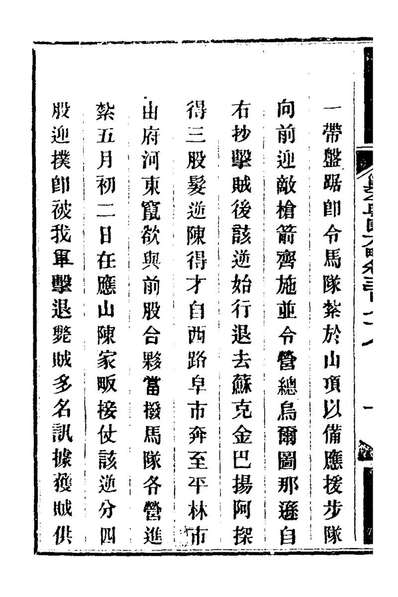 一帶盤踞卽令馬隊紮於山項以備應援步隊
向前迎敵槍箭齊施並令營總烏爾圖那遜自
右抄擊賊後該逆始行退去蘇克金巴揚阿探
得三股髮逆陳得才自西路阜市奔至平林市
由府河東竄欲與前股合夥當撥馬隊各營進
紮五月初二日在應山陳家畈接仗該逆分四
股迎撲卽被我軍擊退斃賊多名訊據獲賊供